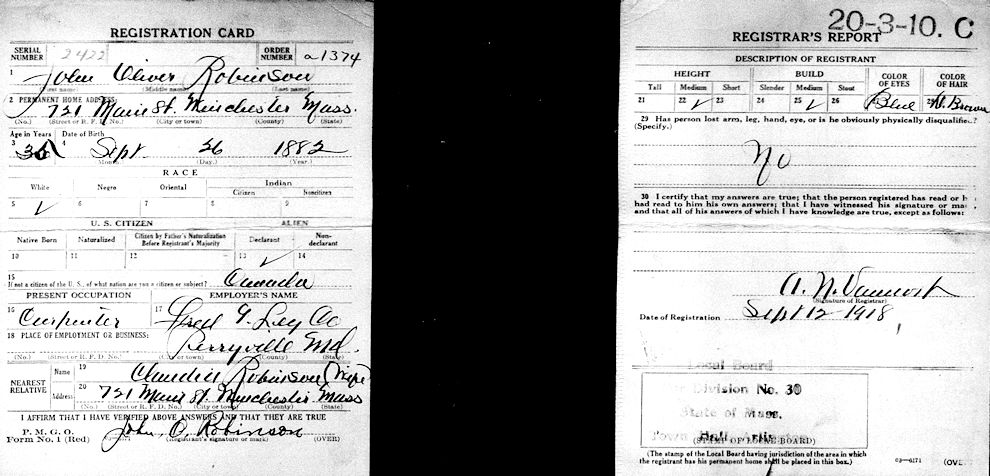 REGISTRATION CARD
SERIAL NUMBER 2422 ORDER NUMBER 21374
1 John Oliver Robinson
(First name) (Middle name) (Last name)
2 PERMANENT HOME ADDRESS:
721 Main St. Winchester Mass.
(No.) (Street or R. F. D. No.) (City or town) (County) (State)
Age in Years Date of Birth
3 4 Sept. 26 1882
(Month.) (Day.) (Year.)
RACE
White Negro Oriental Indian
Citizen Noncitizen
5 ✓ 6 7 8 9
U. S. CITIZEN ALIEN
Native Born Naturalized Citizen by Father's Naturalization Before Registrant's Majority Declarant Non-declarant
10 11 12 13 ✓ 14
15
If not a citizen of the U. S., of what nation are you a citizen or subject? Canada
PRESENT OCCUPATION EMPLOYER'S NAME
16 Carpenter 17 Fred T. Ley Co
18 PLACE OF EMPLOYMENT OR BUSINESS:
Perryville Md.
(No.) (Street or R. F. D. No.) (City or town) (County) (State)
NEAREST RELATIVE
Name 19 Robinson (Wife)
Address 20 721 Main St. Winchester Mass
(No.) (Street or R. F. D. No.) (City or town) (County) (State)
I AFFIRM THAT I HAVE VERIFIED ABOVE ANSWERS AND THAT THEY ARE TRUE
P. M. G. O.
Form No. 1 (Red) John O. Robinson
(Registrant's signature or mark) (OVER)
20-3-10. C
REGISTRAR'S REPORT
DESCRIPTION OF REGISTRANT
HEIGHT BUILD COLOR OF EYES COLOR OF HAIR
Tall Medium Short Slender Medium Stout
21 22 ✓ 23 24 25 ✓ 26 27 Blue 28 Brown
29 Has person lost arm, leg, hand, eye, or is he obviously physically disqualified?
(Specify.)
No
30 I certify that my answers are true; that the person registered has read or h
had read to him his own answers; that I have witnessed his signature or ma
and that all of his answers of which I have knowledge are true, except as follows:
(Signature of Registrar)
Date of Registration Sept 12 1918
Local Board
Division No. 30
State of Mass.
Town Hall Arlin
(STAMP OF LOCAL BOARD)
(The stamp of the Local Board having jurisdiction of the area in which
the registrant has his permanent home shall be placed in this box.)
03—6171 (OVE